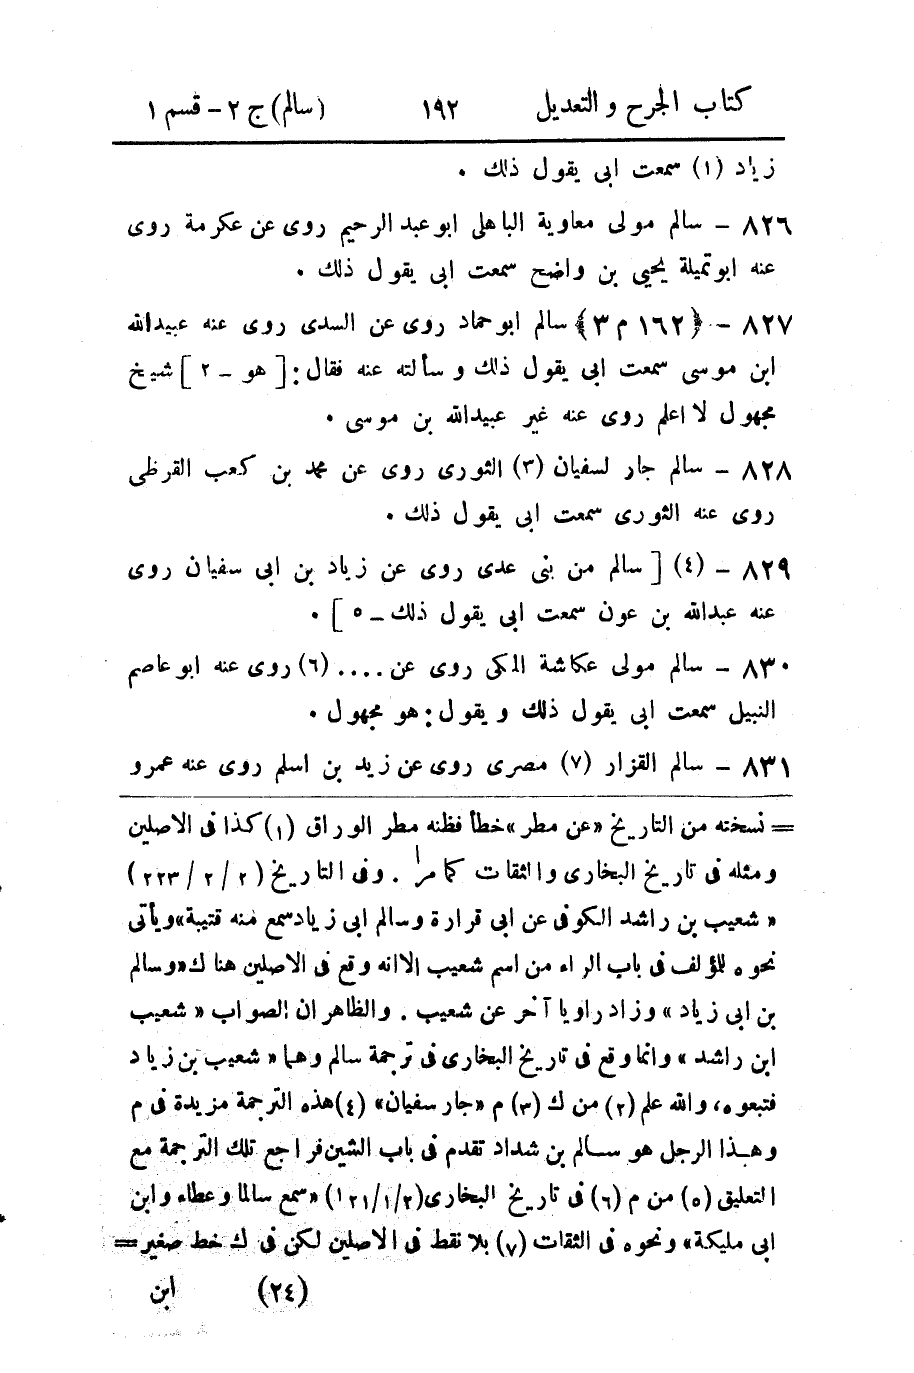 كتاب الجرح والتعديل ١٩٢ (سالم) ج ٢ - قسم ١
زياد (١) سمعت ابى يقول ذلك .
٨٢٦ - سالم مولى معاوية الباهلى ابو عبد الرحيم روى عن عكرمة روى
عنه ابو تميلة يحيى بن واضح سمعت ابى يقول ذلك .
٨٢٧ - ﴿١٦٢ م ٣﴾ سالم ابو حماد روى عن السدى روى عنه عبيدالله
ابن موسى سمعت ابى يقول ذلك و سألته عنه فقال: [هو - ٢] شيخ
مجهول لا اعلم روى عنه غير عبيدالله بن موسى .
٨٢٨ - سالم جار لسفيان (٣) الثورى روى عن محمد بن كعب القرظى
روى عنه الثورى سمعت ابى يقول ذلك .
٨٢٩ - (٤) [سالم من بنى عدى روى عن زياد بن ابى سفيان روى
عنه عبدالله بن عون سمعت ابى يقول ذلك - ٥] .
٨٣٠ - سالم مولى عكاشة المكى روى عن .... (٦) روى عنه ابو عاصم
النبيل سمعت ابى يقول ذلك و يقول: هو مجهول .
٨٣١ - سالم القزار (٧) مصرى روى عن زيد بن اسلم روى عنه عمرو
= نسخته من التاريخ «عن مطر» خطأ فظنه مطر الوراق (١) كذا فى الاصلين
ومثله فى تاريخ البخارى والثقات كما مر . وفى التاريخ (٢/٢/٢٢٣)
«شعيب بن راشد الكوفى عن ابى قرارة وسالم ابى زياد سمع منه قتيبة» ويأتى
نحوه للمؤلف فى باب الراء من اسم شعيب الا انه وقع فى الاصلين هناك «وسالم
بن ابى زياد» وزاد راويا آخر عن شعيب . والظاهر ان الصواب «شعيب
ابن راشد» وانما وقع فى تاريخ البخارى فى ترجمة سالم وهما «شعيب بن زياد
فتبعوه، والله علم (٢) من ك (٣) م «جار سفيان» (٤) هذه الترجمة مزيدة فى م
وهذا الرجل هو سالم بن شداد تقدم فى باب الشين فراجع تلك الترجمة مع
التعليق (٥) من م (٦) فى تاريخ البخارى (٢/١/١٢١) «سمع سالما وعطاء وابن
ابى مليكة» ونحوه فى الثقات (٧) بلا نقط فى الاصلين لكن فى ك خط صغير =
(٢٤) ابن